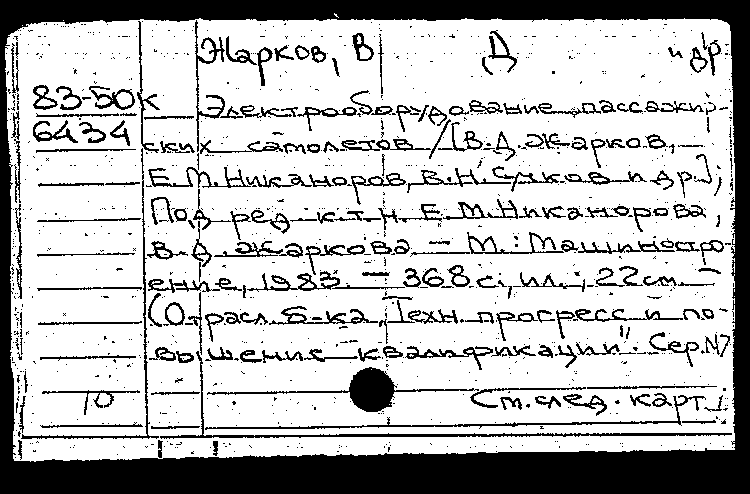 Жарков, В Д и др.
83-50к Электрооборудование пассажир-
6434 ских самолетов / [В.Д. Жарков,
Е.М. Никаноров, В.Н. и др.];
Под ред. к.т.н. Е.М. Никанорова,
В.Д. Жаркова. — М.: Машиностро-
ение, 1983. — 368 с., ил.; 22 см. —
(Отрасл. б-ка „Техн. прогресс и по-
вышение квалификации". Сер. №7
10 См. след. карт.